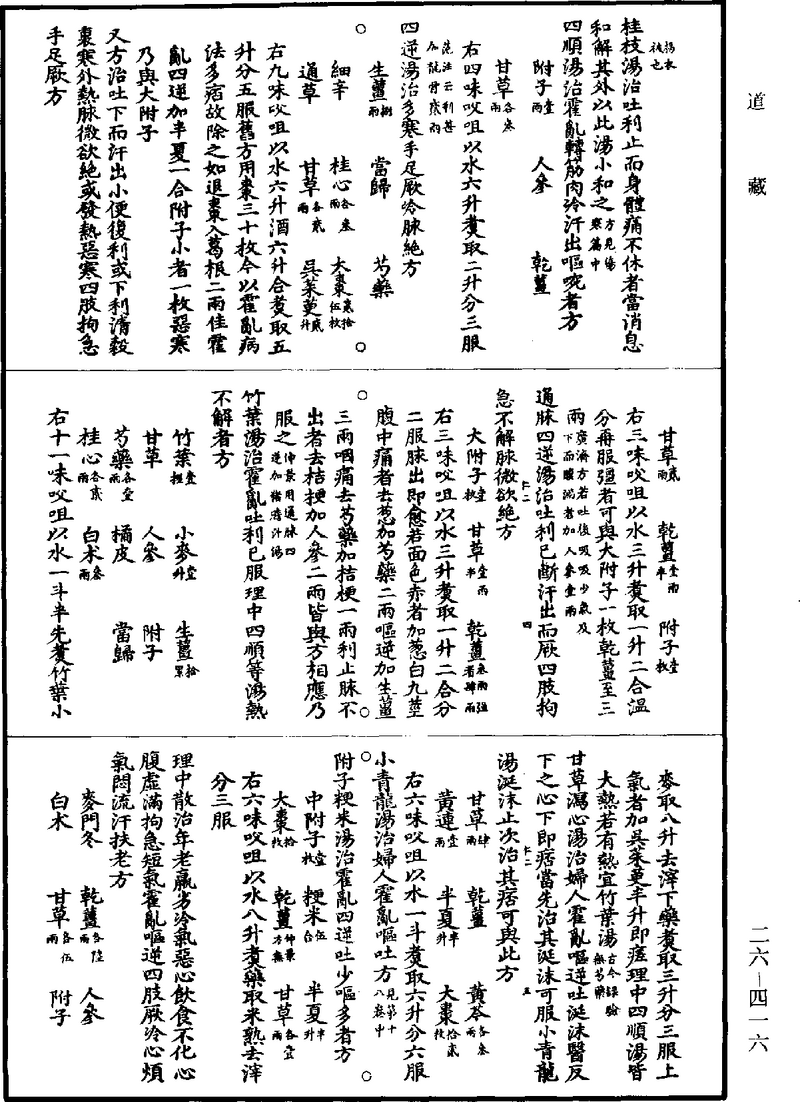 道藏
揚衣
被也
桂枝湯治吐利止而身體痛不休者當消息
和解其外以此湯小和之方見傷寒篇中
四順湯治霍亂轉筋肉冷汗出嘔啘者方
附子壹兩 人參 乾薑
甘草各叁兩
右四味㕮咀以水六升煑取二升分三服
加龍骨貳兩
四逆湯治多寒手足厥冷脉絕方
生薑捌兩 當歸 芍藥
細辛 桂心各叁兩 大棗貳拾伍枚
通草 甘草各貳兩 吳茱萸貳升
右九味㕮咀以水六升酒六升合煑取五
升分五服舊方用棗三十枚今以霍亂病
法多痞故除之如退棗入葛根二兩佳霍
亂四逆加半夏一合附子小者一枚惡寒
乃與大附子
又方治吐下而汗出小便復利或下利清穀
裏寒外熱脉微欲絕或發熱惡寒四肢拘急
手足厥方
甘草貳兩 乾薑壹兩半 附子壹枚
右三味㕮咀以水三升煑取一升二合溫
分再服彊者可與大附子一枚乾薑至三
兩廣濟方若吐後吸吸少氣及下而腹滿者加人參壹兩
通脉四逆湯治吐利已斷汗出而厥四肢拘
急不解脉微欲絕方
大附子壹枚 甘草壹兩半 乾薑叁兩強者肆兩
右三味㕮咀以水三升煑取一升二合分
二服脉出即愈若面色赤者加葱白九莖
腹中痛者去葱加芍藥二兩嘔逆加生薑
三兩咽痛去芍藥加桔梗一兩利止脉不
出者去桔梗加人參二兩皆與方相應乃
服之仲景用通脉四逆加猪膽汁湯
竹葉湯治霍亂吐利已服理中四順等湯熱
不解者方
竹葉壹握 小麥壹升 生薑拾累
甘草 人參 附子
芍藥各壹兩 橘皮 當歸
桂心各貳兩 白术叁兩
右十一味㕮咀以水一斗半先煑竹葉小
麥取八升去滓下藥煑取三升分三服上
氣者加吳茱萸半升即瘥理中四順湯皆
大熱若有熱宜竹葉湯古今錄驗無芍藥
甘草瀉心湯治婦人霍亂嘔逆吐涎沫醫反
下之心下即痞當先治其涎沫可服小青龍
湯涎沫止次治其痞可與此方
甘草肆兩 乾薑 黃芩各叁兩
黃連壹兩 半夏半升 大棗拾貳枚
右六味㕮咀以水一斗煑取六升分六服
小青龍湯治婦人霍亂嘔吐方見第十八卷中
附子粳米湯治霍亂四逆吐少嘔多者方
中附子壹枚 粳米伍合 半夏半升
大棗拾枚 乾薑仲景方無 甘草各壹兩
右六味㕮咀以水八升煑藥取米熟去滓
分三服
理中散治年老羸劣冷氣惡心飲食不化心
腹虛滿拘急短氣霍亂嘔逆四肢厥冷心煩
氣悶流汗扶老方
麥門冬 乾薑各陸兩 人參
白术 甘草各伍兩 附子
二六—四一六